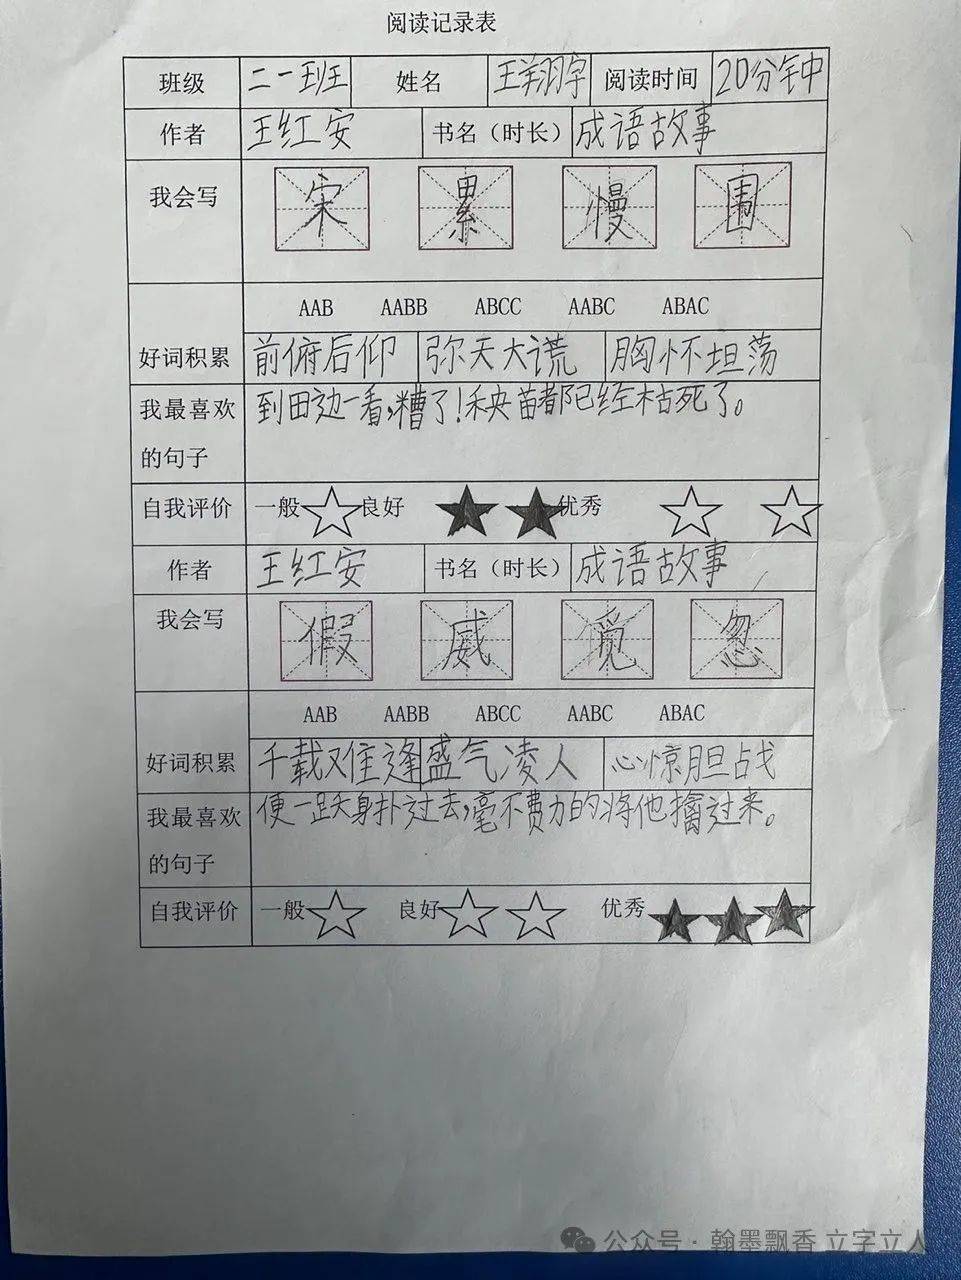 阅读记录表
班级 二一班 姓名 王翔宇 阅读时间 20分钟
作者 王红安 书名（时长） 成语故事
我会写 宋 累 慢 围
AAB AABB ABCC AABC ABAC
好词积累 前俯后仰 弥天大谎 胸怀坦荡
我最喜欢 到田边一看，糟了！秧苗都已经枯死了。
的句子
自我评价 一般☆ 良好 ★ ★ 优秀 ☆ ☆
作者 王红安 书名（时长） 成语故事
我会写 假 威 觅 忽
AAB AABB ABCC AABC ABAC
好词积累 千载难逢 盛气凌人 心惊胆战
我最喜欢 便一跃身扑过去，毫不费力的将他擒过来。
的句子
自我评价 一般☆ 良好☆ ☆ 优秀 ★ ★ ★
公众号·翰墨飘香 立字立人